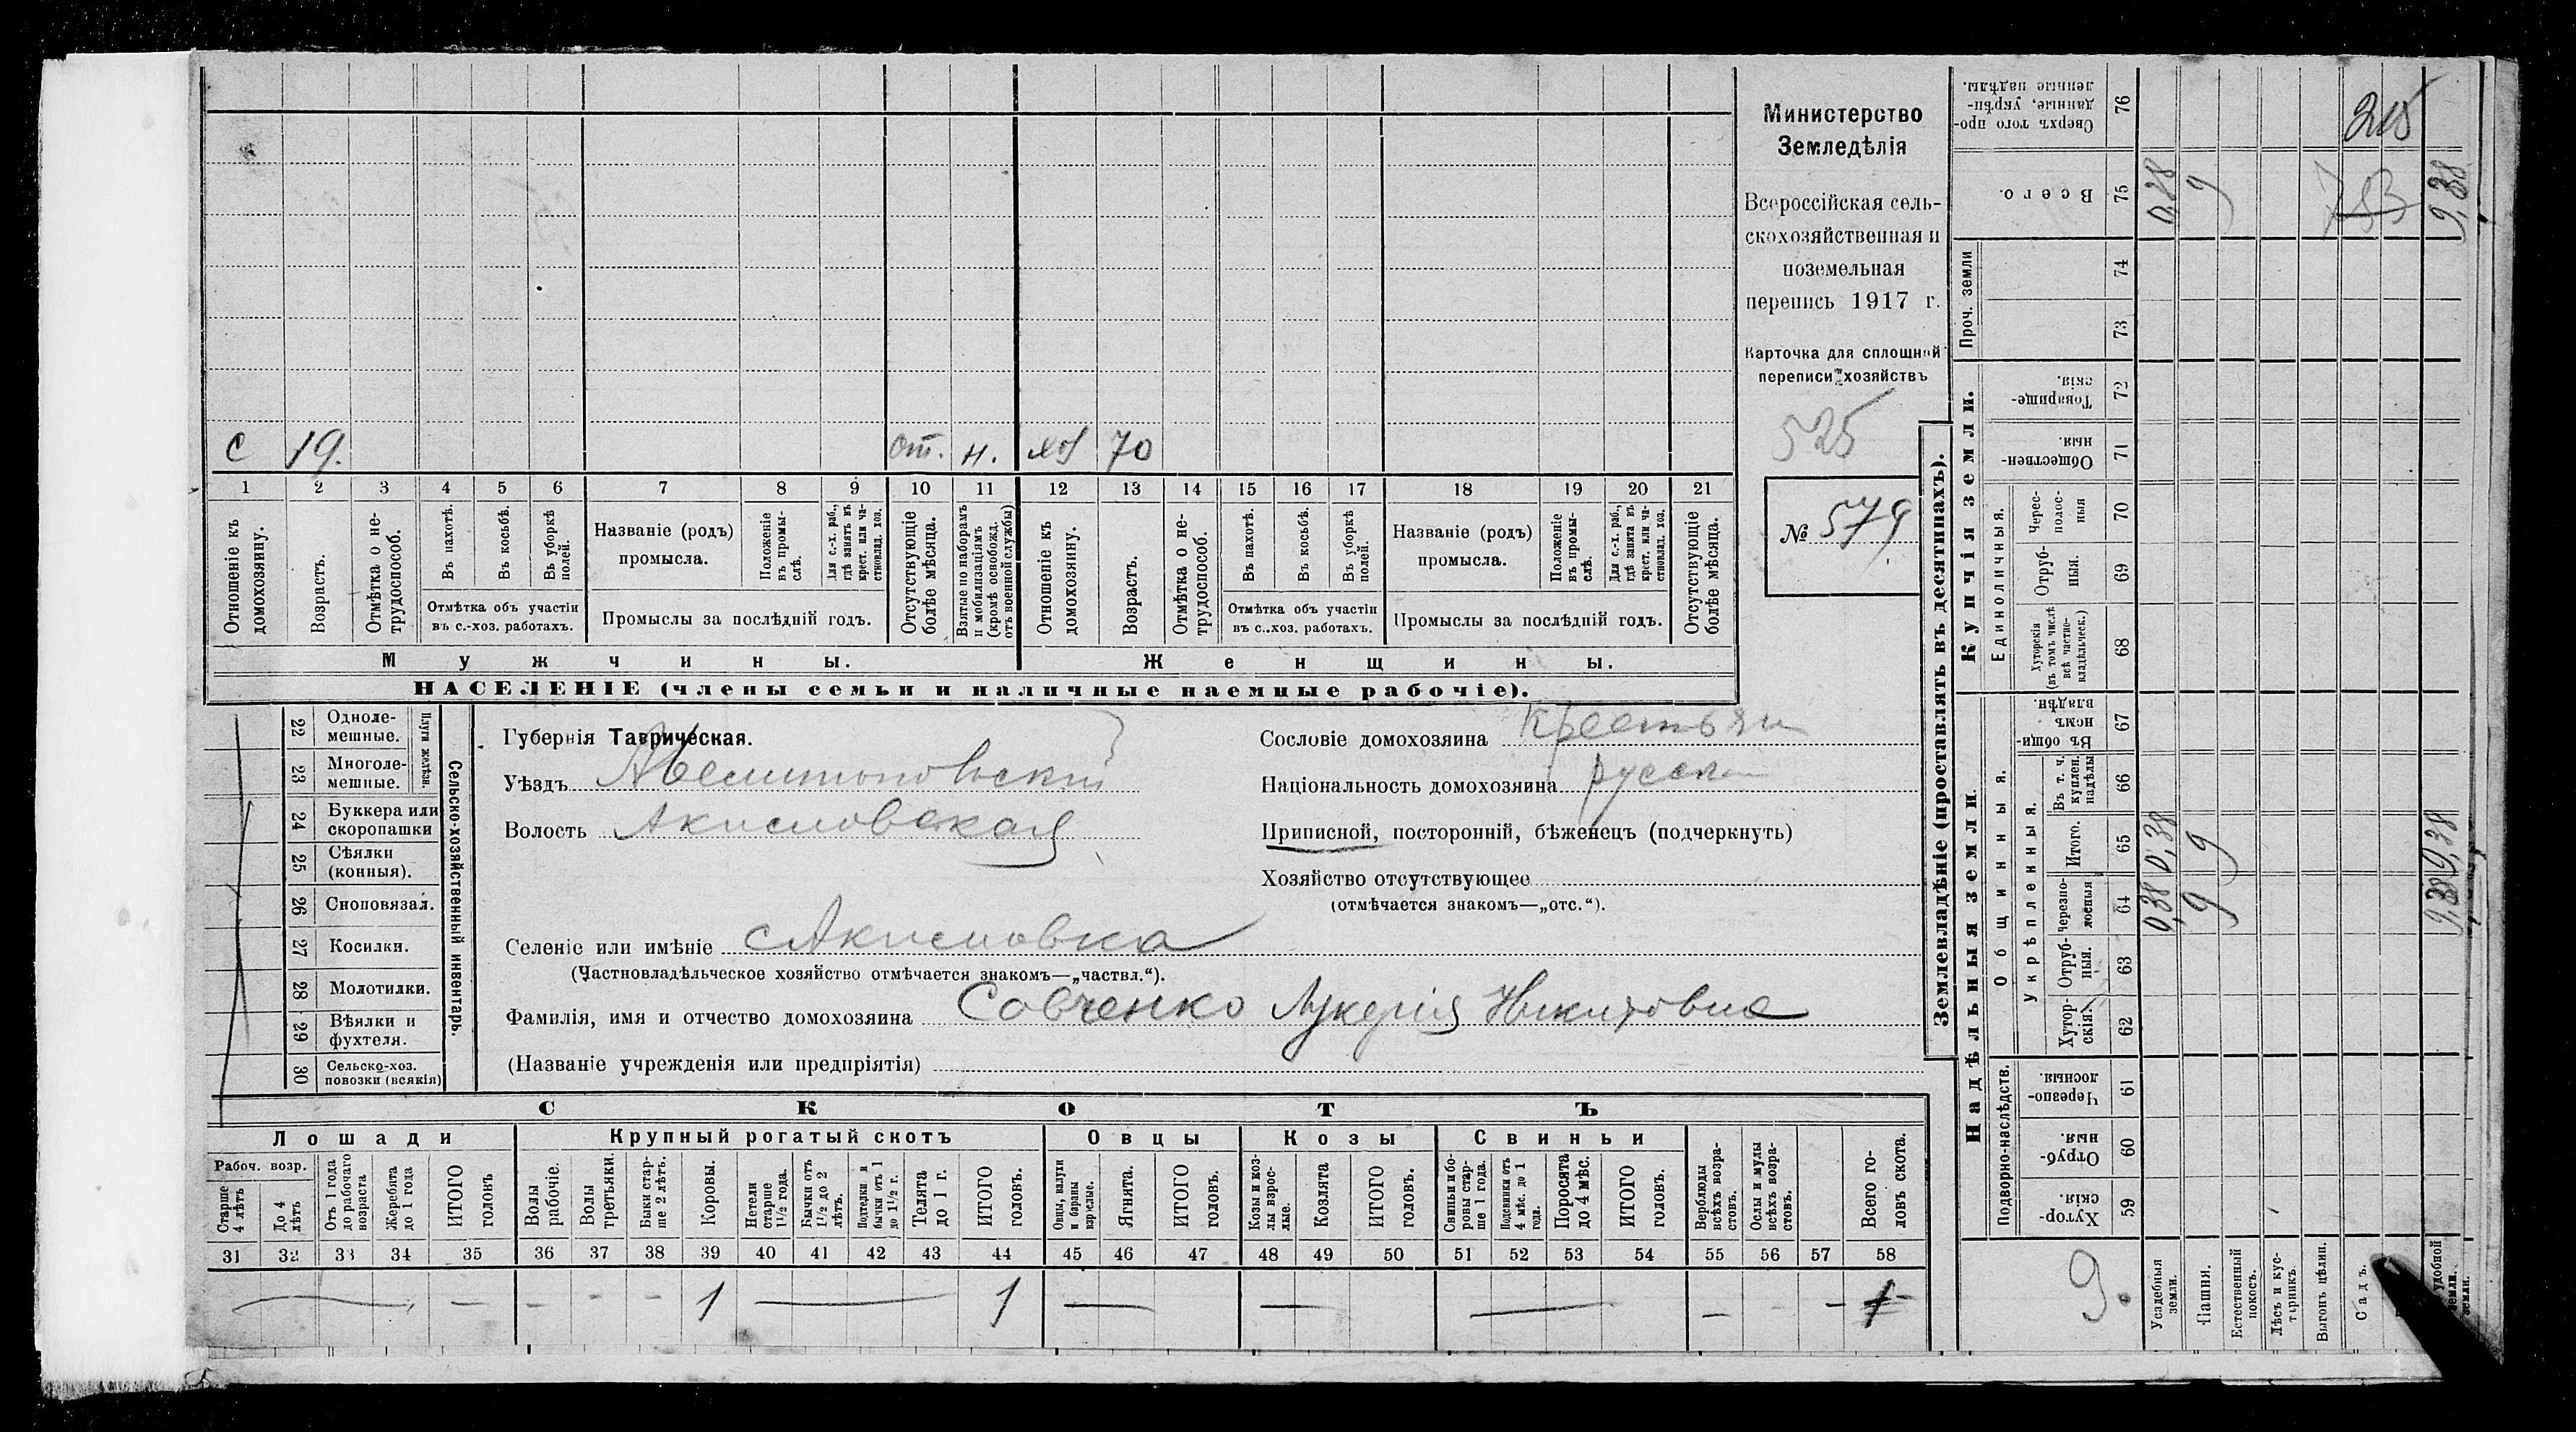 Министерство
Земледѣлія
Всероссійская сель-
скохозяйственная и
поземельная
перепись 1917 г.
Карточка для сплошной
переписи хозяйствъ
525
№ 579
с 19. от. н. хоз 70
1 2 3 4 5 6 7 8 9 10 11 12 13 14 15 16 17 18 19 20 21
Отношеніе къ домохозяину.
Возрастъ.
Отмѣтка о не-трудоспособ.
Въ пахотѣ.
Въ косьбѣ.
Въ уборкѣ полей.
Отмѣтка объ участіи
въ с.-хоз. работахъ.
Названіе (родъ)
промысла.
Положеніе въ промы-слѣ.
Для с.-х. раб., гдѣ занятъ въ крест. или ча-стновлад. хоз.
Промыслы за послѣдній годъ.
Отсутствующіе болѣе мѣсяца.
Взятые по наборамъ и мобилизаціямъ (кромѣ освобожд. отъ военной службы)
Отношеніе къ домохозяину.
Возрастъ.
Отмѣтка о не-трудоспособ.
Въ пахотѣ.
Въ косьбѣ.
Въ уборкѣ полей.
Отмѣтка объ участіи
въ с.-хоз. работахъ.
Названіе (родъ)
промысла.
Положеніе въ промы-слѣ.
Для с.-х. раб., гдѣ занята въ крест. или ча-стновлад. хоз.
Промыслы за послѣдній годъ.
Отсутствующіе болѣе мѣсяца.
Мужчины. Женщины.
НАСЕЛЕНІЕ (члены семьи и наличные наемные рабочіе).
22 Одноле-мешные.
23 Многоле-мешные.
Плуги желѣзн.
24 Буккера или скоропашки
25 Сѣялки (конныя).
26 Сноповязал.
27 Косилки.
28 Молотилки.
29 Вѣялки и фухтеля.
30 Сельско-хоз. повозки (всякія)
Сельско-хозяйственный инвентарь.
Губернія Таврическая.
Уѣздъ Мелитопольскій
Волость Акимовская
Селеніе или имѣніе с Акимовка
(Частновладѣльческое хозяйство отмѣчается знакомъ—„частвл.“).
Фамилія, имя и отчество домохозяина Совченко Лукерія Никитовна
(Названіе учрежденія или предпріятія)
Сословіе домохозяина крестьян
Національность домохозяина русск
Приписной, посторонній, бѣженецъ (подчеркнуть)
Хозяйство отсутствующее
(отмѣчается знакомъ—„отс.“).
СКОТЪ
Лошади Крупный рогатый скотъ Овцы Козы Свиньи
Рабоч. возр.
Старше 4 лѣтъ
До 4 лѣтъ
Отъ 1 года до рабочаго возраста
Жеребята до 1 года
ИТОГО головъ
Волы рабочіе.
Волы третьяки.
Быки стар-ше 2 лѣтъ.
Коровы.
Нетели старше 1½ года.
Бычки отъ 1½ до 2 лѣтъ.
Подтелки и бычки отъ 1 до 1½ г.
Телята до 1 г.
ИТОГО головъ.
Овцы, валухи и бараны взрослые.
Ягнята.
ИТОГО головъ.
Козы и коз-лы взрос-лые.
Козлята
ИТОГО головъ.
Свиньи и бо-ровы стар-ше 1 года.
Подсвинки отъ 4 мѣс. до 1 года.
Поросята до 4 мѣс.
ИТОГО головъ.
Верблюды всѣхъ возра-стовъ.
Ослы и мулы всѣхъ возра-стовъ.
Всего го-ловъ скота.
31 32 33 34 35 36 37 38 39 40 41 42 43 44 45 46 47 48 49 50 51 52 53 54 55 56 57 58
— — - - - 1 — 1 — — — — - — 1
Землевладѣніе (проставлять въ десятинахъ).
Надѣльныя земли.
Купчія земли.
Проч. земли
Подворно-наслѣдств.
Общинныя.
Укрѣпленныя.
Единоличныя.
59 Хутор-скія.
60 Отруб-ныя.
61 Черезпо-лосныя.
62 Хутор-скія.
63 Отруб-ныя.
64 черезпо-лосныя
65 Итого.
66 Въ т. ч. куплен. надѣлы
67 Въ общин-номъ владѣн.
68 Хуторскія (въ томъ числѣ всѣ частно-владѣльческ.)
69 Отруб-ныя.
70 Черес-полос-ныя
71 Обществен-ныя.
72 Товарище-скія.
73
74
75 Всего.
76 Сверхъ того про-данные, укрѣп-ленные надѣлы.
9.
Усадебныя земли. 0,38 0,38 0,38
Пашня. 9 9 9
Естественный покосъ.
Лѣсъ и кус-тарникъ.
Выгонъ цѣлин.
Садъ.
удобной земли. 9,38 9,38 9,38
215